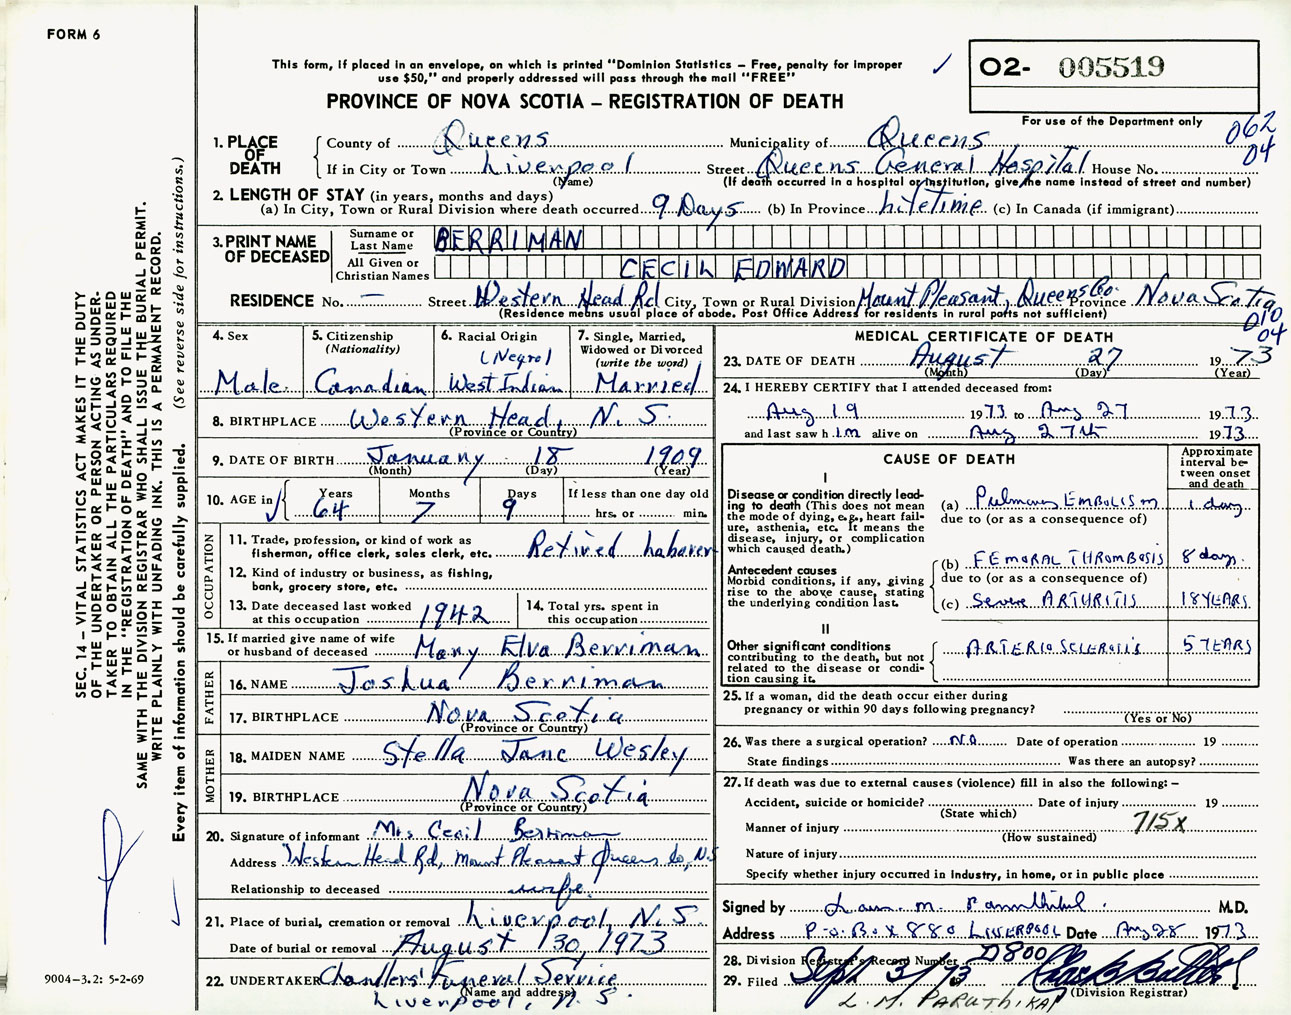 FORM 6
This form, if placed in an envelope, on which is printed "Dominion Statistics – Free, penalty for improper
use $50," and properly addressed will pass through the mail "FREE"
PROVINCE OF NOVA SCOTIA – REGISTRATION OF DEATH
02- 005519
For use of the Department only
062
04
1. PLACE OF DEATH
County of Queens Municipality of Queens
If in City or Town Liverpool Street Queens General Hospital House No.
(Name) (If death occurred in a hospital or institution, give the name instead of street and number)
2. LENGTH OF STAY (in years, months and days)
(a) In City, Town or Rural Division where death occurred 9 Days (b) In Province Lifetime (c) In Canada (if immigrant)
3. PRINT NAME OF DECEASED
Surname or Last Name BERRIMAN
All Given or Christian Names CECIL EDWARD
RESIDENCE No. — Street Western Head Rd City, Town or Rural Division Mount Pleasant, Queens Co. Province Nova Scotia
(Residence means usual place of abode. Post Office Address for residents in rural parts not sufficient)
010
04
4. Sex
Male
5. Citizenship
(Nationality)
Canadian
6. Racial Origin
(Negro)
West Indian
7. Single, Married,
Widowed or Divorced
(write the word)
Married
8. BIRTHPLACE Western Head, N. S.
(Province or Country)
9. DATE OF BIRTH January 18 1909
(Month) (Day) (Year)
10. AGE in Years 64 Months 7 Days 9 If less than one day old
hrs. or min.
OCCUPATION
11. Trade, profession, or kind of work as
fisherman, office clerk, sales clerk, etc. Retired Laborer
12. Kind of industry or business, as fishing,
bank, grocery store, etc.
13. Date deceased last worked
at this occupation 1942
14. Total yrs. spent in
this occupation
15. If married give name of wife
or husband of deceased Mary Elva Berriman
FATHER
16. NAME Joshua Berriman
17. BIRTHPLACE Nova Scotia
(Province or Country)
MOTHER
18. MAIDEN NAME Stella Jane Wesley
19. BIRTHPLACE Nova Scotia
(Province or Country)
20. Signature of informant Mrs Cecil Berriman
Address Western Head Rd, Mount Pleasant Queens Co, N.S
Relationship to deceased wife.
21. Place of burial, cremation or removal Liverpool, N.S.
Date of burial or removal August 30, 1973
22. UNDERTAKER Chandlers' Funeral Service
(Name and address)
Liverpool, N. S.
MEDICAL CERTIFICATE OF DEATH
23. DATE OF DEATH August 27 1973
(Month) (Day) (Year)
24. I HEREBY CERTIFY that I attended deceased from:
Aug 19 1973 to Aug 27 1973
and last saw him alive on Aug 27th 1973
CAUSE OF DEATH
Approximate
interval be-
tween onset
and death
I
Disease or condition directly lead-
ing to death (This does not mean
the mode of dying, e.g., heart fail-
ure, asthenia, etc. It means the
disease, injury, or complication
which caused death.)
(a) Pulmonary EMBOLISM 1 day
due to (or as a consequence of)
Antecedent causes
Morbid conditions, if any, giving
rise to the above cause, stating
the underlying condition last.
(b) FEMORAL THROMBOSIS 8 days.
due to (or as a consequence of)
(c) Severe ARTHRITIS 18 YEARS
II
Other significant conditions
contributing to the death, but not
related to the disease or condi-
tion causing it.
ARTERIOSCLEROSIS 5 YEARS
25. If a woman, did the death occur either during
pregnancy or within 90 days following pregnancy?
(Yes or No)
26. Was there a surgical operation? No Date of operation 19
State findings Was there an autopsy?
27. If death was due to external causes (violence) fill in also the following: –
Accident, suicide or homicide? Date of injury 19
(State which)
Manner of injury 715X
(How sustained)
Nature of injury
Specify whether injury occurred in industry, in home, or in public place
Signed by M.D.
Address P.O. Box 880 LIVERPOOL Date Aug 28 1973
28. Division Registrar's Record Number D800
29. Filed Sept 3/73
(Division Registrar)
L. M. PARUTHIKAL
SEC. 14 – VITAL STATISTICS ACT MAKES IT THE DUTY
OF THE UNDERTAKER OR PERSON ACTING AS UNDER-
TAKER TO OBTAIN ALL THE PARTICULARS REQUIRED
IN THE "REGISTRATION OF DEATH" AND TO FILE THE
SAME WITH THE DIVISION REGISTRAR WHO SHALL ISSUE THE BURIAL PERMIT.
WRITE PLAINLY WITH UNFADING INK. THIS IS A PERMANENT RECORD.
Every item of information should be carefully supplied. (See reverse side for instructions.)
9004–3.2: 5-2-69